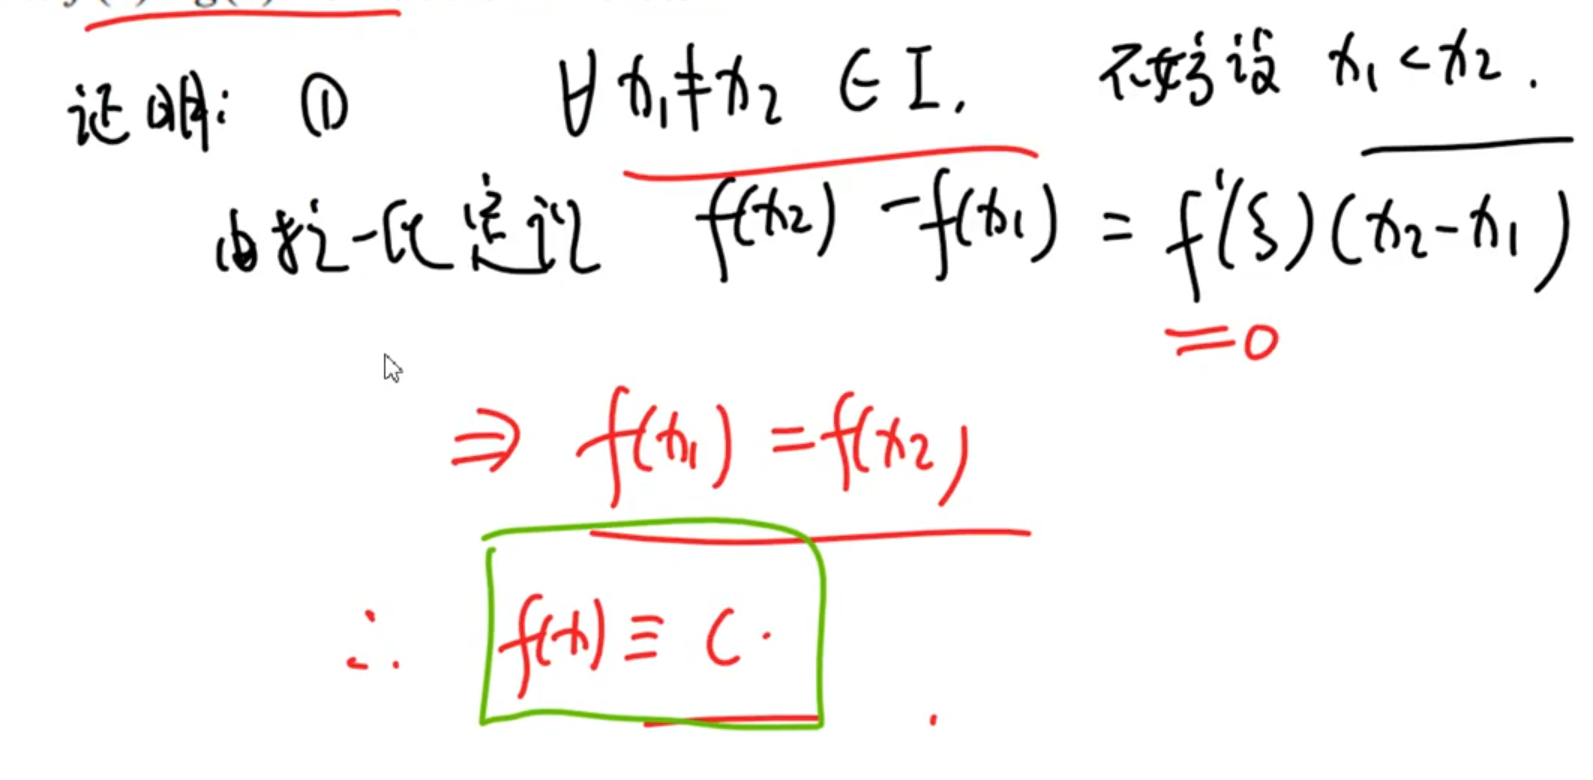 证明: ① ∀ x₁≠x₂ ∈ I. 不妨设 x₁<x₂.
由拉氏定理 f(x₂) -f(x₁) = f'(ξ)(x₂-x₁)
=0
⇒ f(x₁) =f(x₂)
∴ f(x) ≡ C.